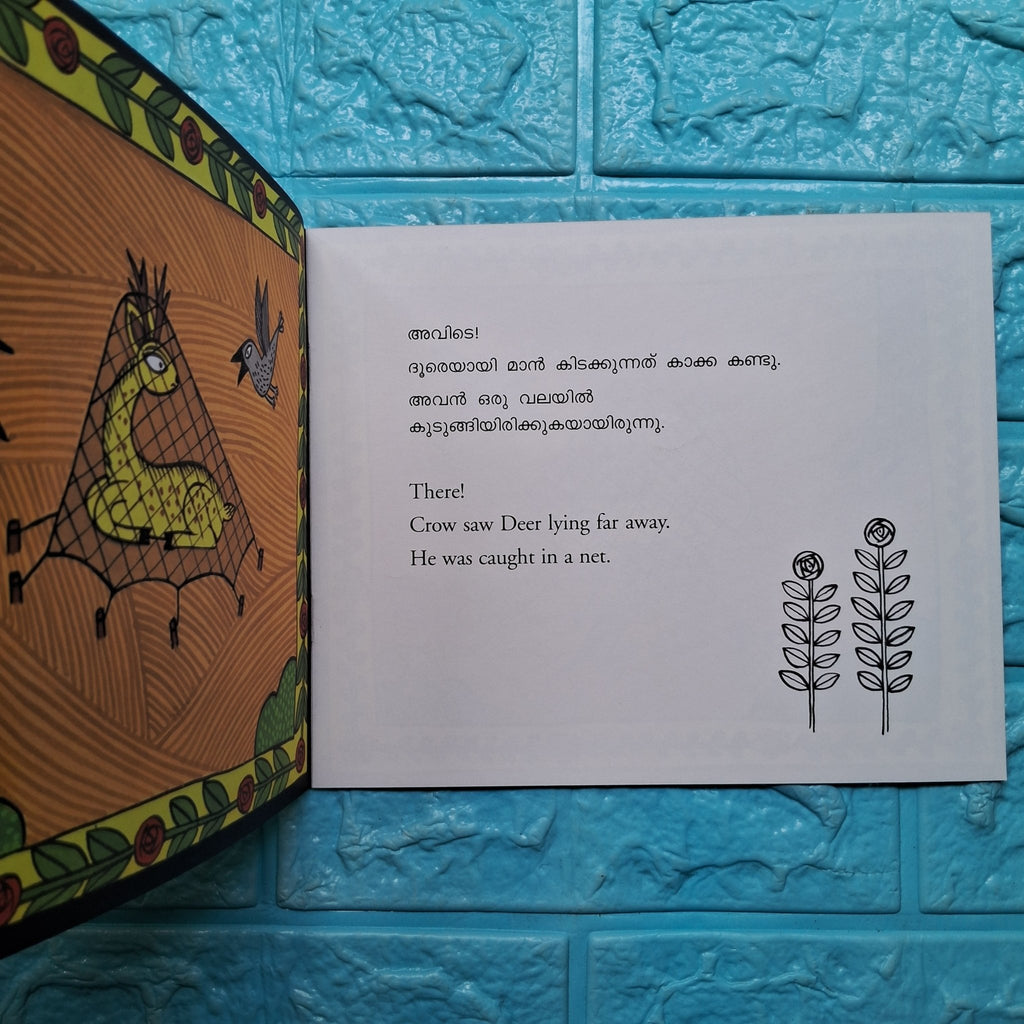 അവിടെ!
ദൂരെയായി മാൻ കിടക്കുന്നത് കാക്ക കണ്ടു.
അവൻ ഒരു വലയിൽ
കുടുങ്ങിയിരിക്കുകയായിരുന്നു.
There!
Crow saw Deer lying far away.
He was caught in a net.